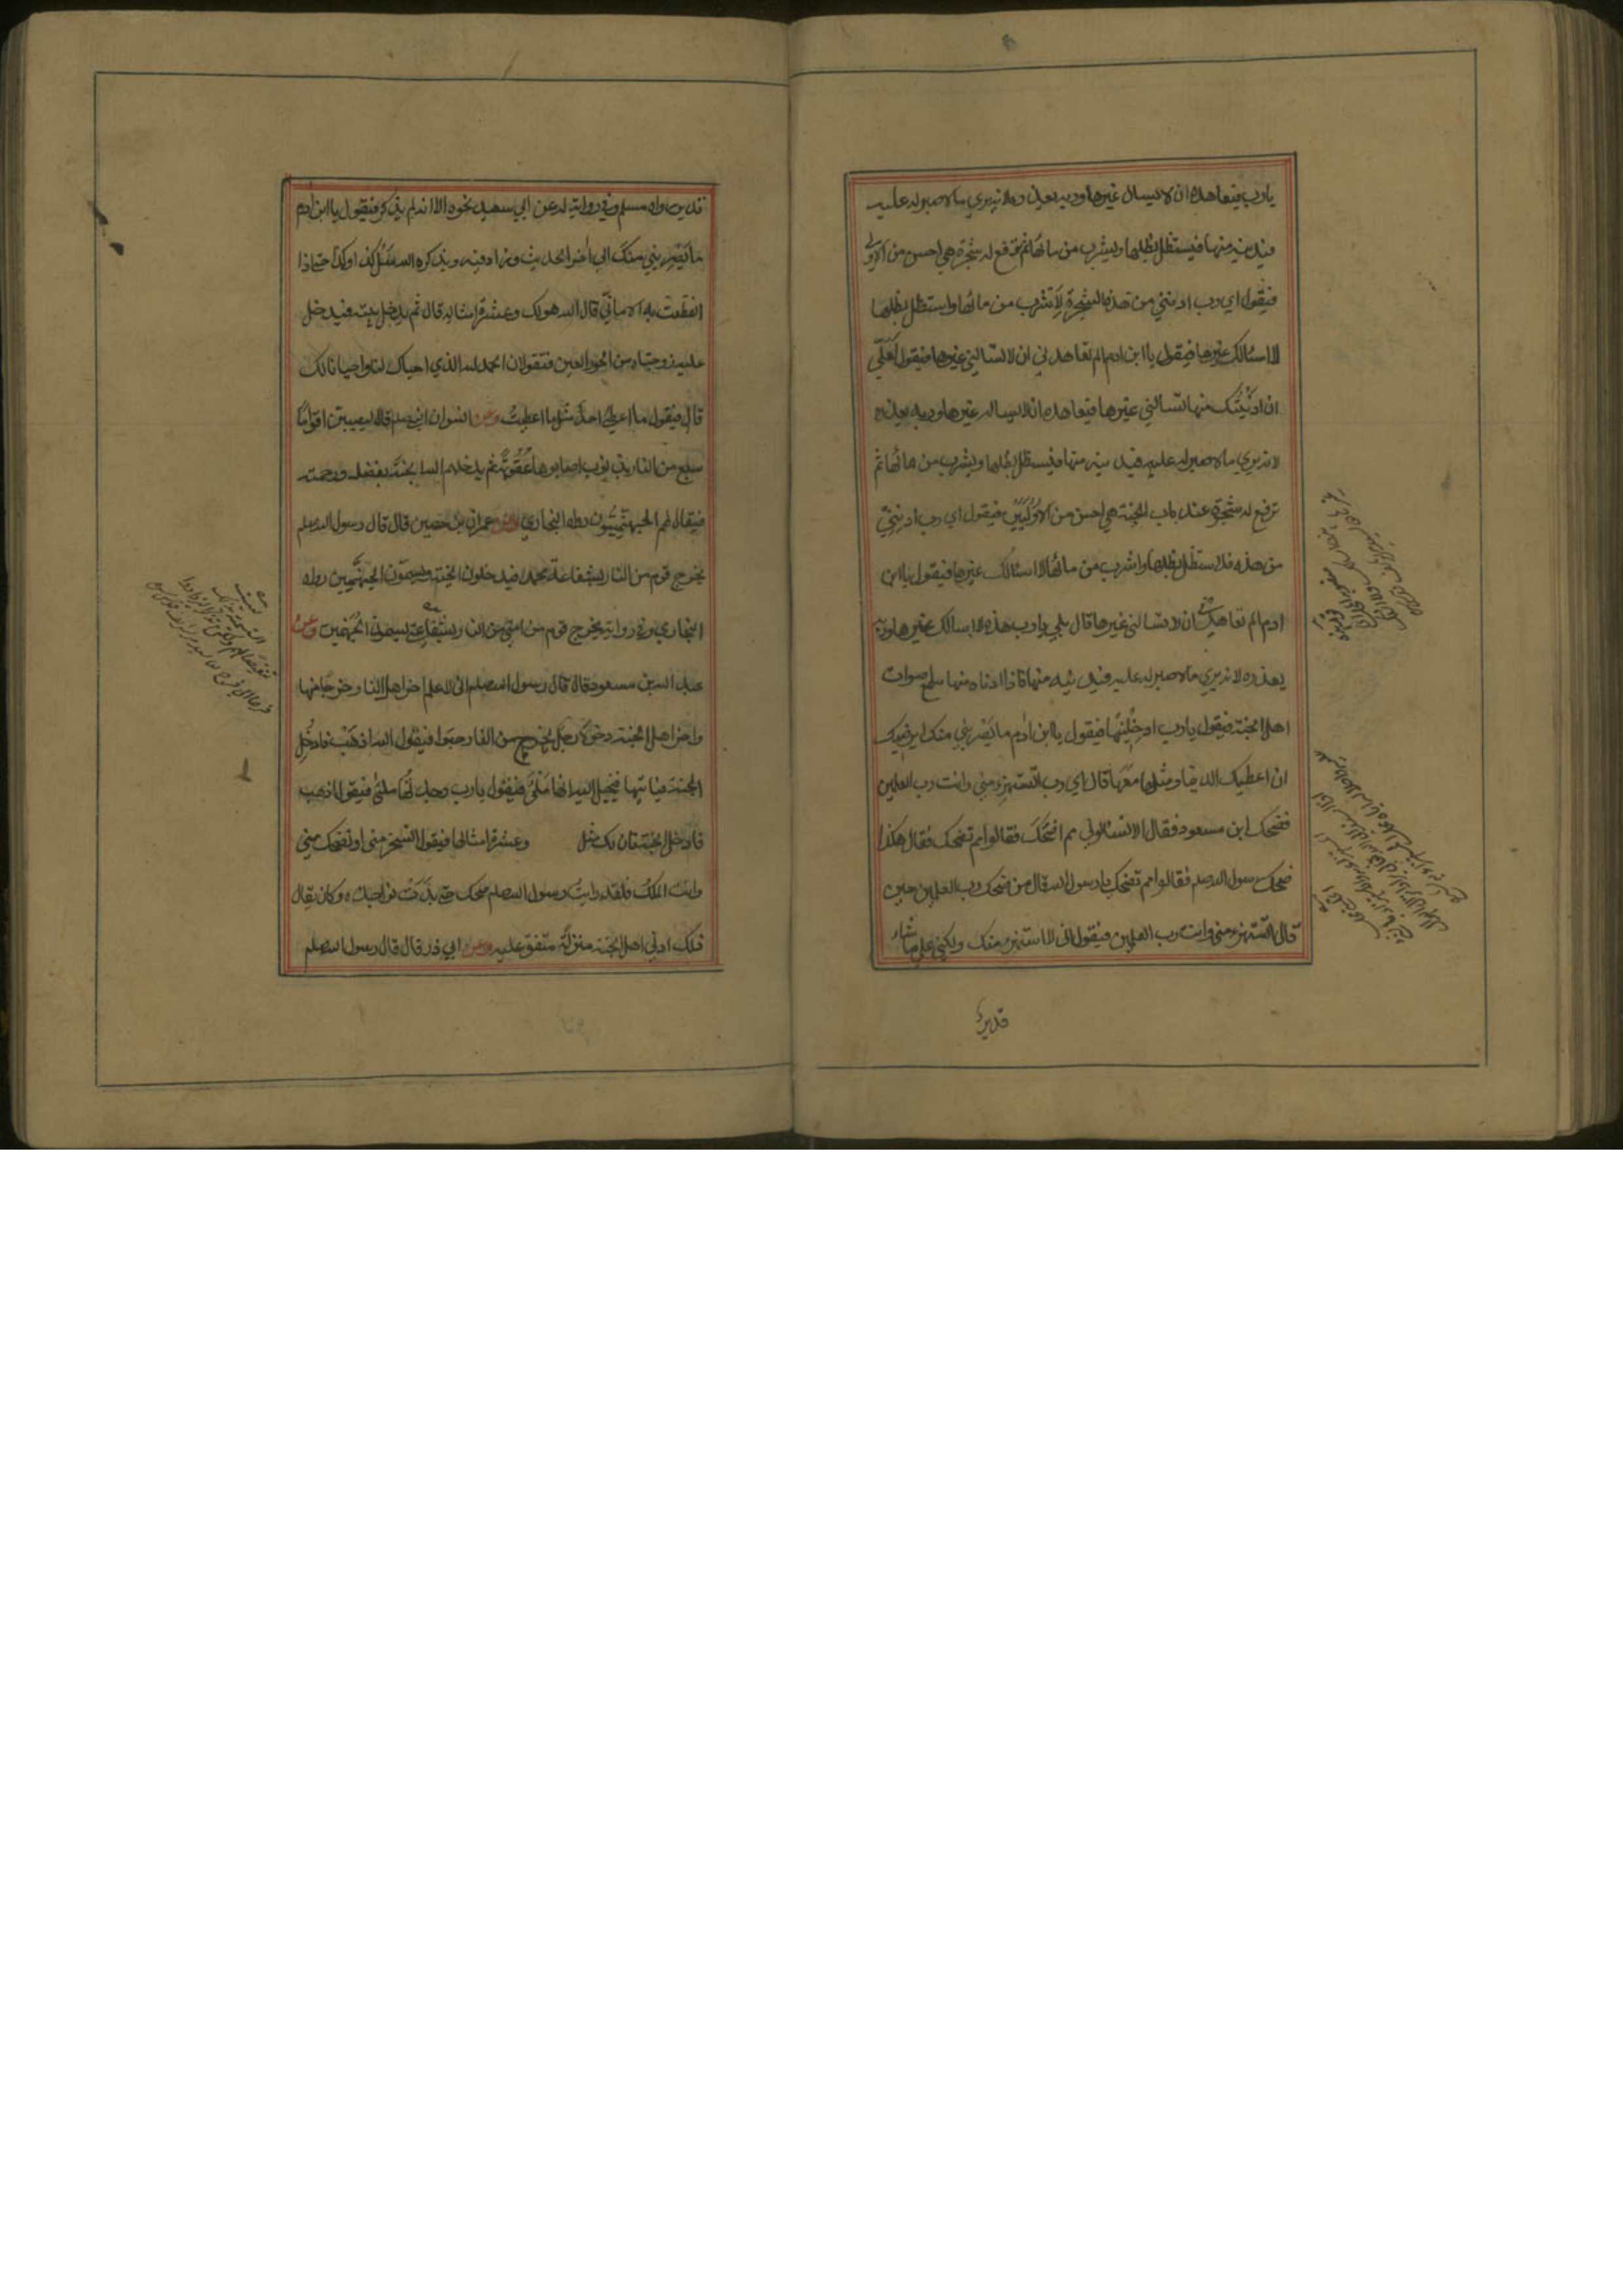 يارب فيعاهده ان لا يسال غيرها وربه يعذره لانه يري ما لا صبر له عليه
فيدنيه منها فيستظل بظلها ويشرب من مائها ثم ترفع له شجرة هي احسن من الاولي
فيقول اي رب ادنني من هذه الشجرة لاشرب من مائها واستظل بظلها
لا اسئالك غيرها فيقول يا ابن ادم الم تعاهدني ان لا تسالني غيرها فيقول لعلي
ان ادنيتك منها تسالني غيرها فيعاهده ان لا يساله غيرها وربه يعذره
لانه يري ما لا صبر له عليه فيدنيه منها فيستظل بظلها ويشرب من مائها ثم
ترفع له شجرة عند باب الجنة هي احسن من الاوليين فيقول اي رب ادنني
من هذه فلاستظل بظلها واشرب من مائها لا اسئالك غيرها فيقول يا ابن
ادم الم تعاهدني ان لا تسالني غيرها قال بلي يا رب هذه لا اسالك غيرها وربه
يعذره لانه يري ما لا صبر له عليه فيدنيه منها فاذا ادناه منها سمع اصوات
اهل الجنة فيقول يا رب ادخلنيها فيقول يا ابن ادم ما يصريني منك ايرضيك
ان اعطيك الدنيا ومثلها معها قال اي رب اتستهزء مني وانت رب العلمين
فضحك ابن مسعود فقال الا تسئالوني مم اضحك فقالوا مم تضحك فقال هكذا
ضحك رسول الله صلعم فقالوا مم تضحك يا رسول الله قال من ضحك رب العلمين حين
قال اتستهزء مني وانت رب العلمين فيقول اني لا استهزء منك ولكني علي ما شاء
قدير
قدير رواه مسلم وفي رواية له عن ابي سعيد نحوه الا انه لم يذكر فيقول يا ابن ادم
ما يصريني منك الي اخر الحديث وزاد فيه ويذكره الله سل كذا وكذا حتي اذا
انقطعت به الاماني قال الله هو لك وعشرة امثاله قال ثم يدخل بيته فيدخل
عليه زوجتاه من الحور العين فتقولان الحمد لله الذي احياك لنا واحيانا لك
قال فيقول ما اعطي احد مثل ما اعطيت وعن انس ان النبي صلعم قال ليصيبن اقواما
سفع من النار بذنوب اصابوها عقوبة ثم يدخلهم الله الجنة بفضله ورحمته
فيقال لهم الجهنميون رواه البخاري وعن عمران بن حصين قال قال رسول الله صلعم
يخرج قوم من النار بشفاعة محمد فيدخلون الجنة ويسمون الجهنميين رواه
البخاري وفي رواية يخرج قوم من امتي من النار بشفاعتي يسمون الجهنميين وعن
عبد الله بن مسعود قال قال رسول الله صلعم اني لاعلم اخر اهل النار خروجا منها
واخر اهل الجنة دخولا رجل يخرج من النار حبوا فيقول الله اذهب فادخل
الجنة فياتيها فيخيل اليه انها ملئي فيقول يا رب وجدتها ملئي فيقول اذهب
فادخل الجنة فان لك مثل وعشرة امثالها فيقول اتسخر مني او تضحك مني
وانت الملك فلقد رايت رسول الله صلعم ضحك حتي بدت نواجذه وكان يقال
ذلك ادني اهل الجنة منزلة متفق عليه وعن ابي ذر قال قال رسول الله صلعم